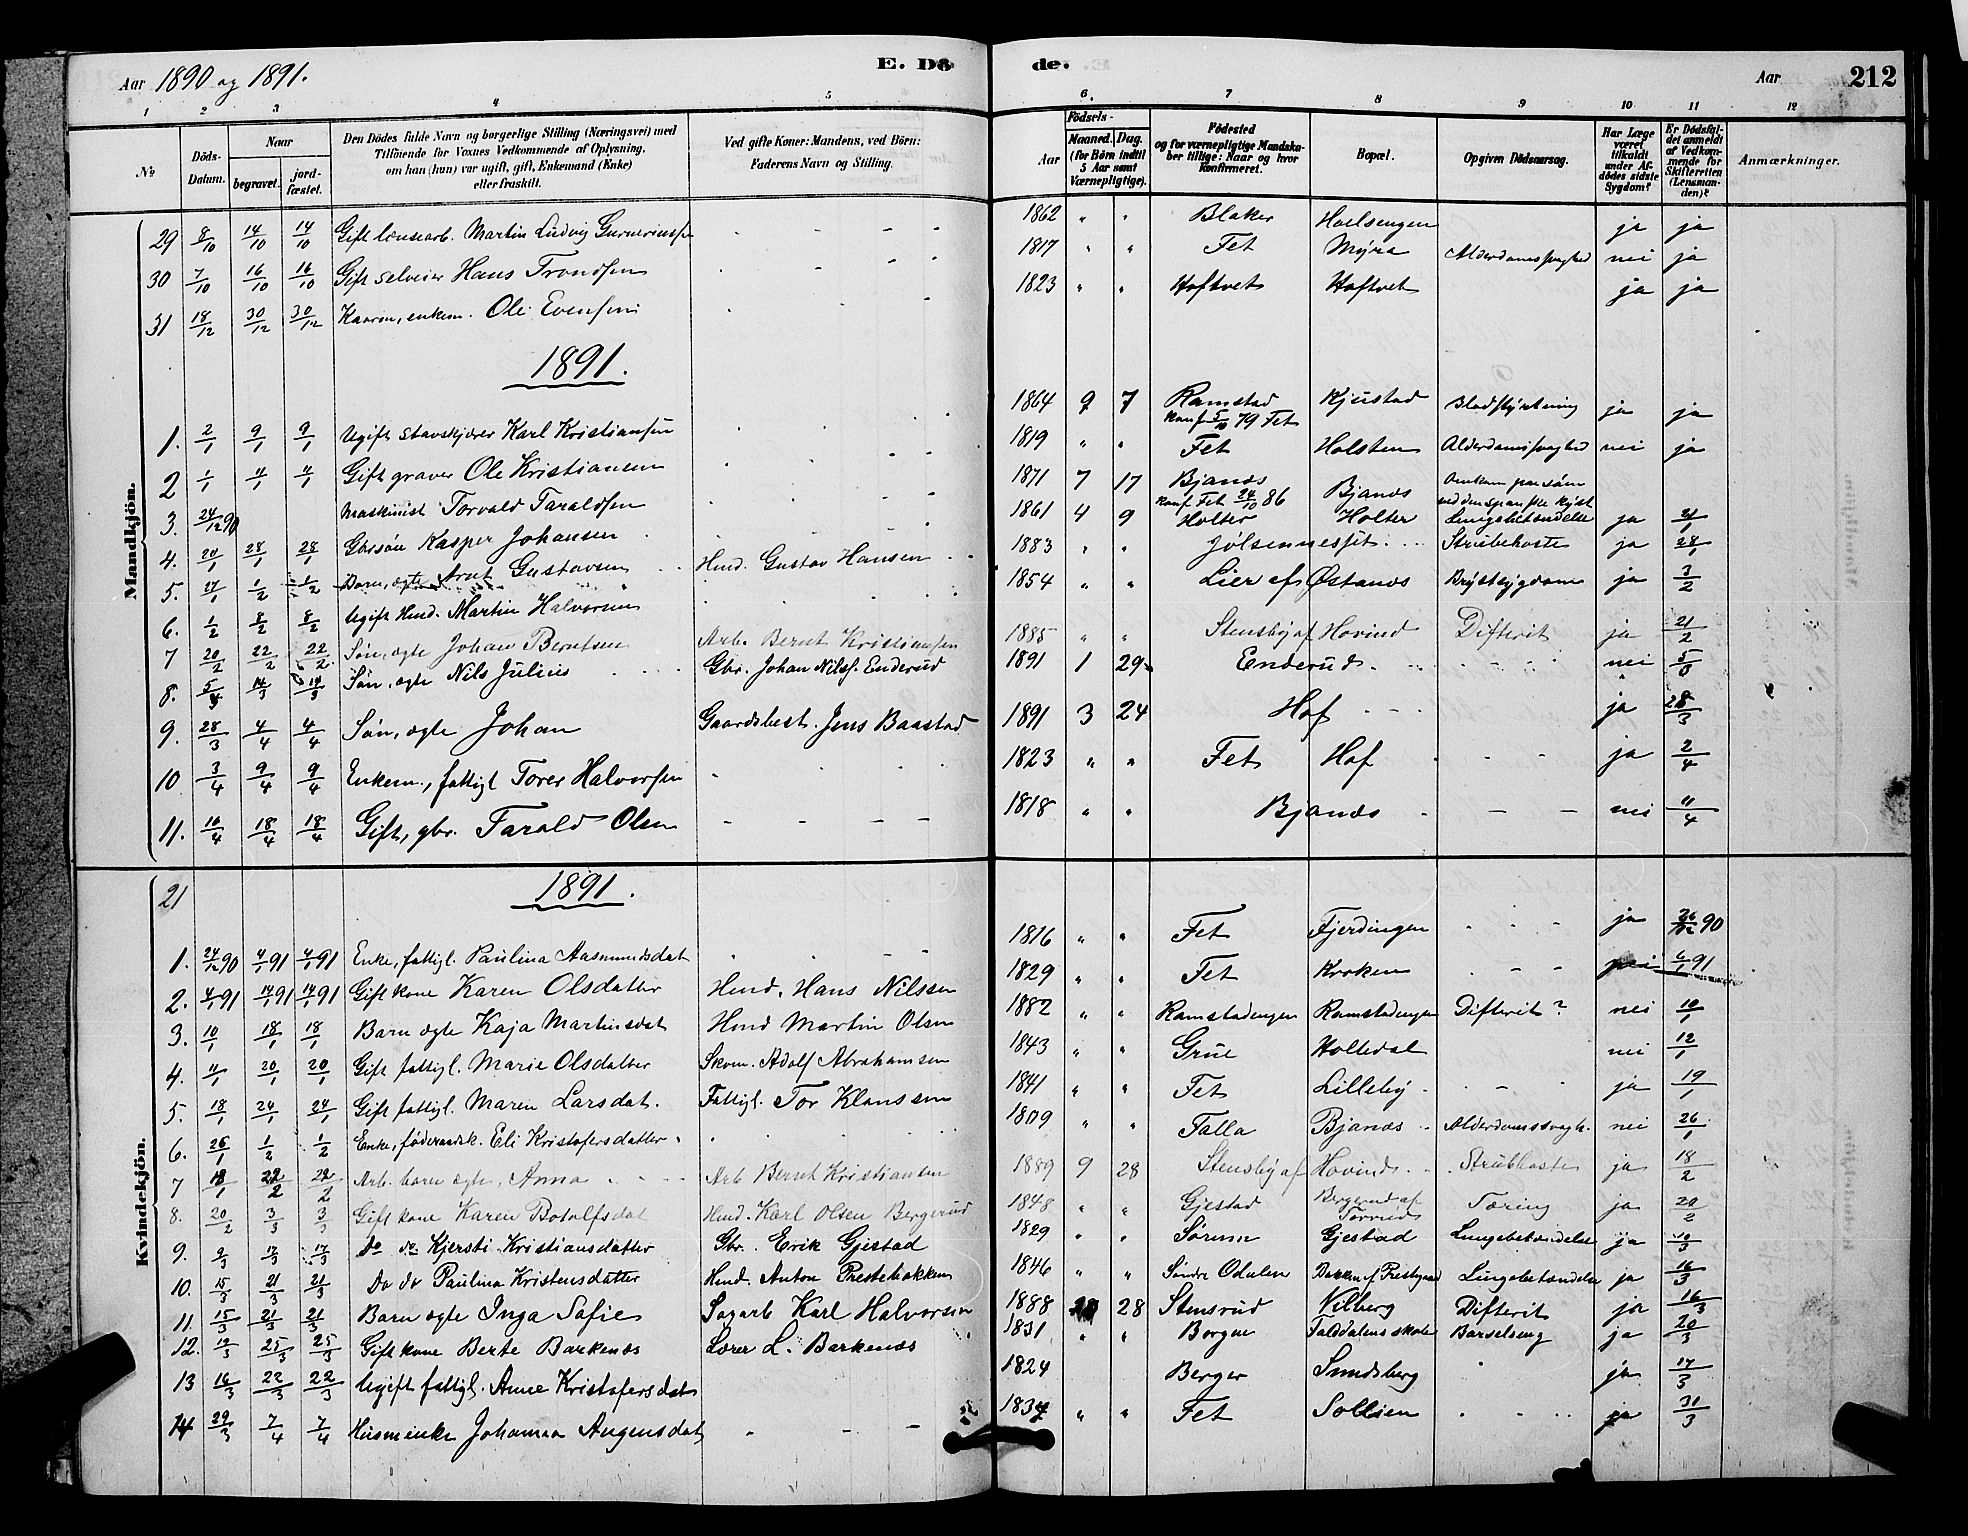 Aar 1890 og 1891. E. Dö de. Aar 212
1 2 3 4 5 6 7 8 9 10 11 12
No
Döds-Datum.
Naar begravet. jordfæstet.
Den Dödes fulde Navn og borgerlige Stilling (Næringsvei) med Tilföiende for Voxnes Vedkommende af Oplysning, om han (hun) var ugift, gift, Enkemand (Enke) eller fraskilt.
Ved gifte Koner: Mandens, ved Börn: Faderens Navn og Stilling.
Födsels-
Aar Maaned. Dag. (for Börn indtil 5 Aar samt Værnepligtige).
Födested og for værnepligtige Mandskaber tillige: Naar og hvor Konfirmeret.
Bopæl.
Opgiven Dödsaarsag.
Har Læge været tilkaldt under Afdödes sidste Sygdom?
Er Dödsfaldet anmeldt af Vedkommende for Skifteretten (Lensmanden)?
Anmærkninger.
Mandkjön.
29 8/10 14/10 14/10 Gift lænsearb. Martin Ludvig 1862 " " Blaker ja ja
30 7/10 16/10 16/10 Gift selveier Hans Trondsen 1817 " " Fet Myra Alderdomssvaghed nei ja
31 18/12 30/12 30/12 enkem. Ole Evensen 1823 " " Hoftvet Hoftvet ja ja
1891.
1. 2/1 9/1 9/1 Ugift stavskjærer Karl Kristiansen 1864 9 7 Ramstad konf 5/10 79 Fet Kjustad Blodstyrtning ja ja
2 1/1 11/1 11/1 Gift graver Ole Kristiansen 1819 " " Fet Holsten Alderdomssvaghed nei ja
3. 24/12 90 Maskinist Torvald Taraldsen 1871 7 17 Bjanes konf. Fet 24/10 86 Bjanes Omkom paa söen ved den spanske kyst
4. 20/1 28/1 28/1 Gbrsön Kasper Johansen 1861 4 9 Holter Holter Lungebetændelse ja 21/1
5. 27/1 1/2 1/2 Barn, ægte Arnt Gustavsen Hmd. Gustav Hansen 1883 " " Jölsennesset Strubehoste ja 28/1
6. 1/2 8/2 8/2 Ugift Hmd. Martin Halvorsen 1854 " " Lier af Östanes Brystsygdom ja 3/2
7 20/2 22/2 22/2 Sön, ægte Johan Berntsen Arb. Bernt Kristiansen 1885 " " Stensby af Hovind Difterit ja 21/2
8. Sön, ægte Nils Julius Gbr. Johan Nilss. Enderud 1891 1 29 Enderud nei
9. 28/3 4/4 4/4 Sön, ægte Johan Gaardsbest. Jens Baastad 1891 3 24 Hof ja 28/3
10 3/4 9/4 9/4 Enkem., fattigl Torer Halvorsen 1823 " " Fet Hof ja 2/4
11. 10/4 18/4 18/4 Gift, gbr. Tarald Olsen 1818 " " Bjanes nei 11/4
Kvindekjön.
21 1891.
1. 24/12 90 4/1 91 4/1 91 Enke, fattigl. Paulina Aasmundsdat 1816 " " Fet Fjerdingen ja 26/12 90
2. 4/1 91 14/1 91 14/1 91 Gift kone Karen Olsdatter Hmd. Hans Nilssen 1829 " " Fet Kroken nei 6/1 91
3. 10/1 18/1 18/1 Barn ægte Kaja Martinsdat Hmd Martin Olsen 1882 " " Ramstadengen Ramstadengen Difterit? nei 10/1
4. 11/1 20/1 20/1 Gift fattigl. Marie Olsdatter Skom. Adolf Abrahamsen 1843 " " Grue Holtedal nei 12/1
5. 18/1 24/1 24/1 Gift fattigl. Maren Larsdat. Fattigl. Tor Klaussen 1841 " " Fet Lilleby ja 19/1
6. 25/1 1/2 1/2 Enke, föderaadsk. Eli Kristofersdatter 1809 " " Falla Bjanes Alderdomssvagh. nei 26/1
7 18/1 22/2 22/2 Arb. barn ægte, Anna Arb Bernt Kristiansen 1889 9 28 Stensby af Hovind Strubhoste ja 18/2
8. 20/2 3/3 3/3 Gift kone Karen Botolfsdat Hmd. Karl Olsen Bergerud 1848 " " Gjestad Bergerud af Tæring ja 20/2
9. 9/3 17/3 17/3 do do Kjersti Kristiansdatter Gbr. Erik Gjestad 1829 " " Sörum Gjestad Lungebetændelse ja 10/3
10. 15/3 21/3 21/3 Do do Paulina Kristensdatter Hmd. Anton Prestebakken 1846 " " Söndre Odalen Bakken af Prestgaard Lungebetændelse ja 16/3
11. 15/3 21/3 21/3 Barn ægte Inga Sofie Sagarb Karl Halvorsen 1888 28 Stensrud Vilberg Difterit ja 16/3
12. 25/3 25/3 Gift kone Berte Barkenæs Lærer L. Barkenæs 1831 " " Borgen Falddalens skole Barselseng ja 20/3
13 16/3 22/3 22/3 Ugift fattigl. Anne Kristofersdat 1824 Berger Sundsberg ja 17/3
14 29/3 7/4 7/4 Husmenke Johanna Augensdat " " Fet Sollien ja 31/3